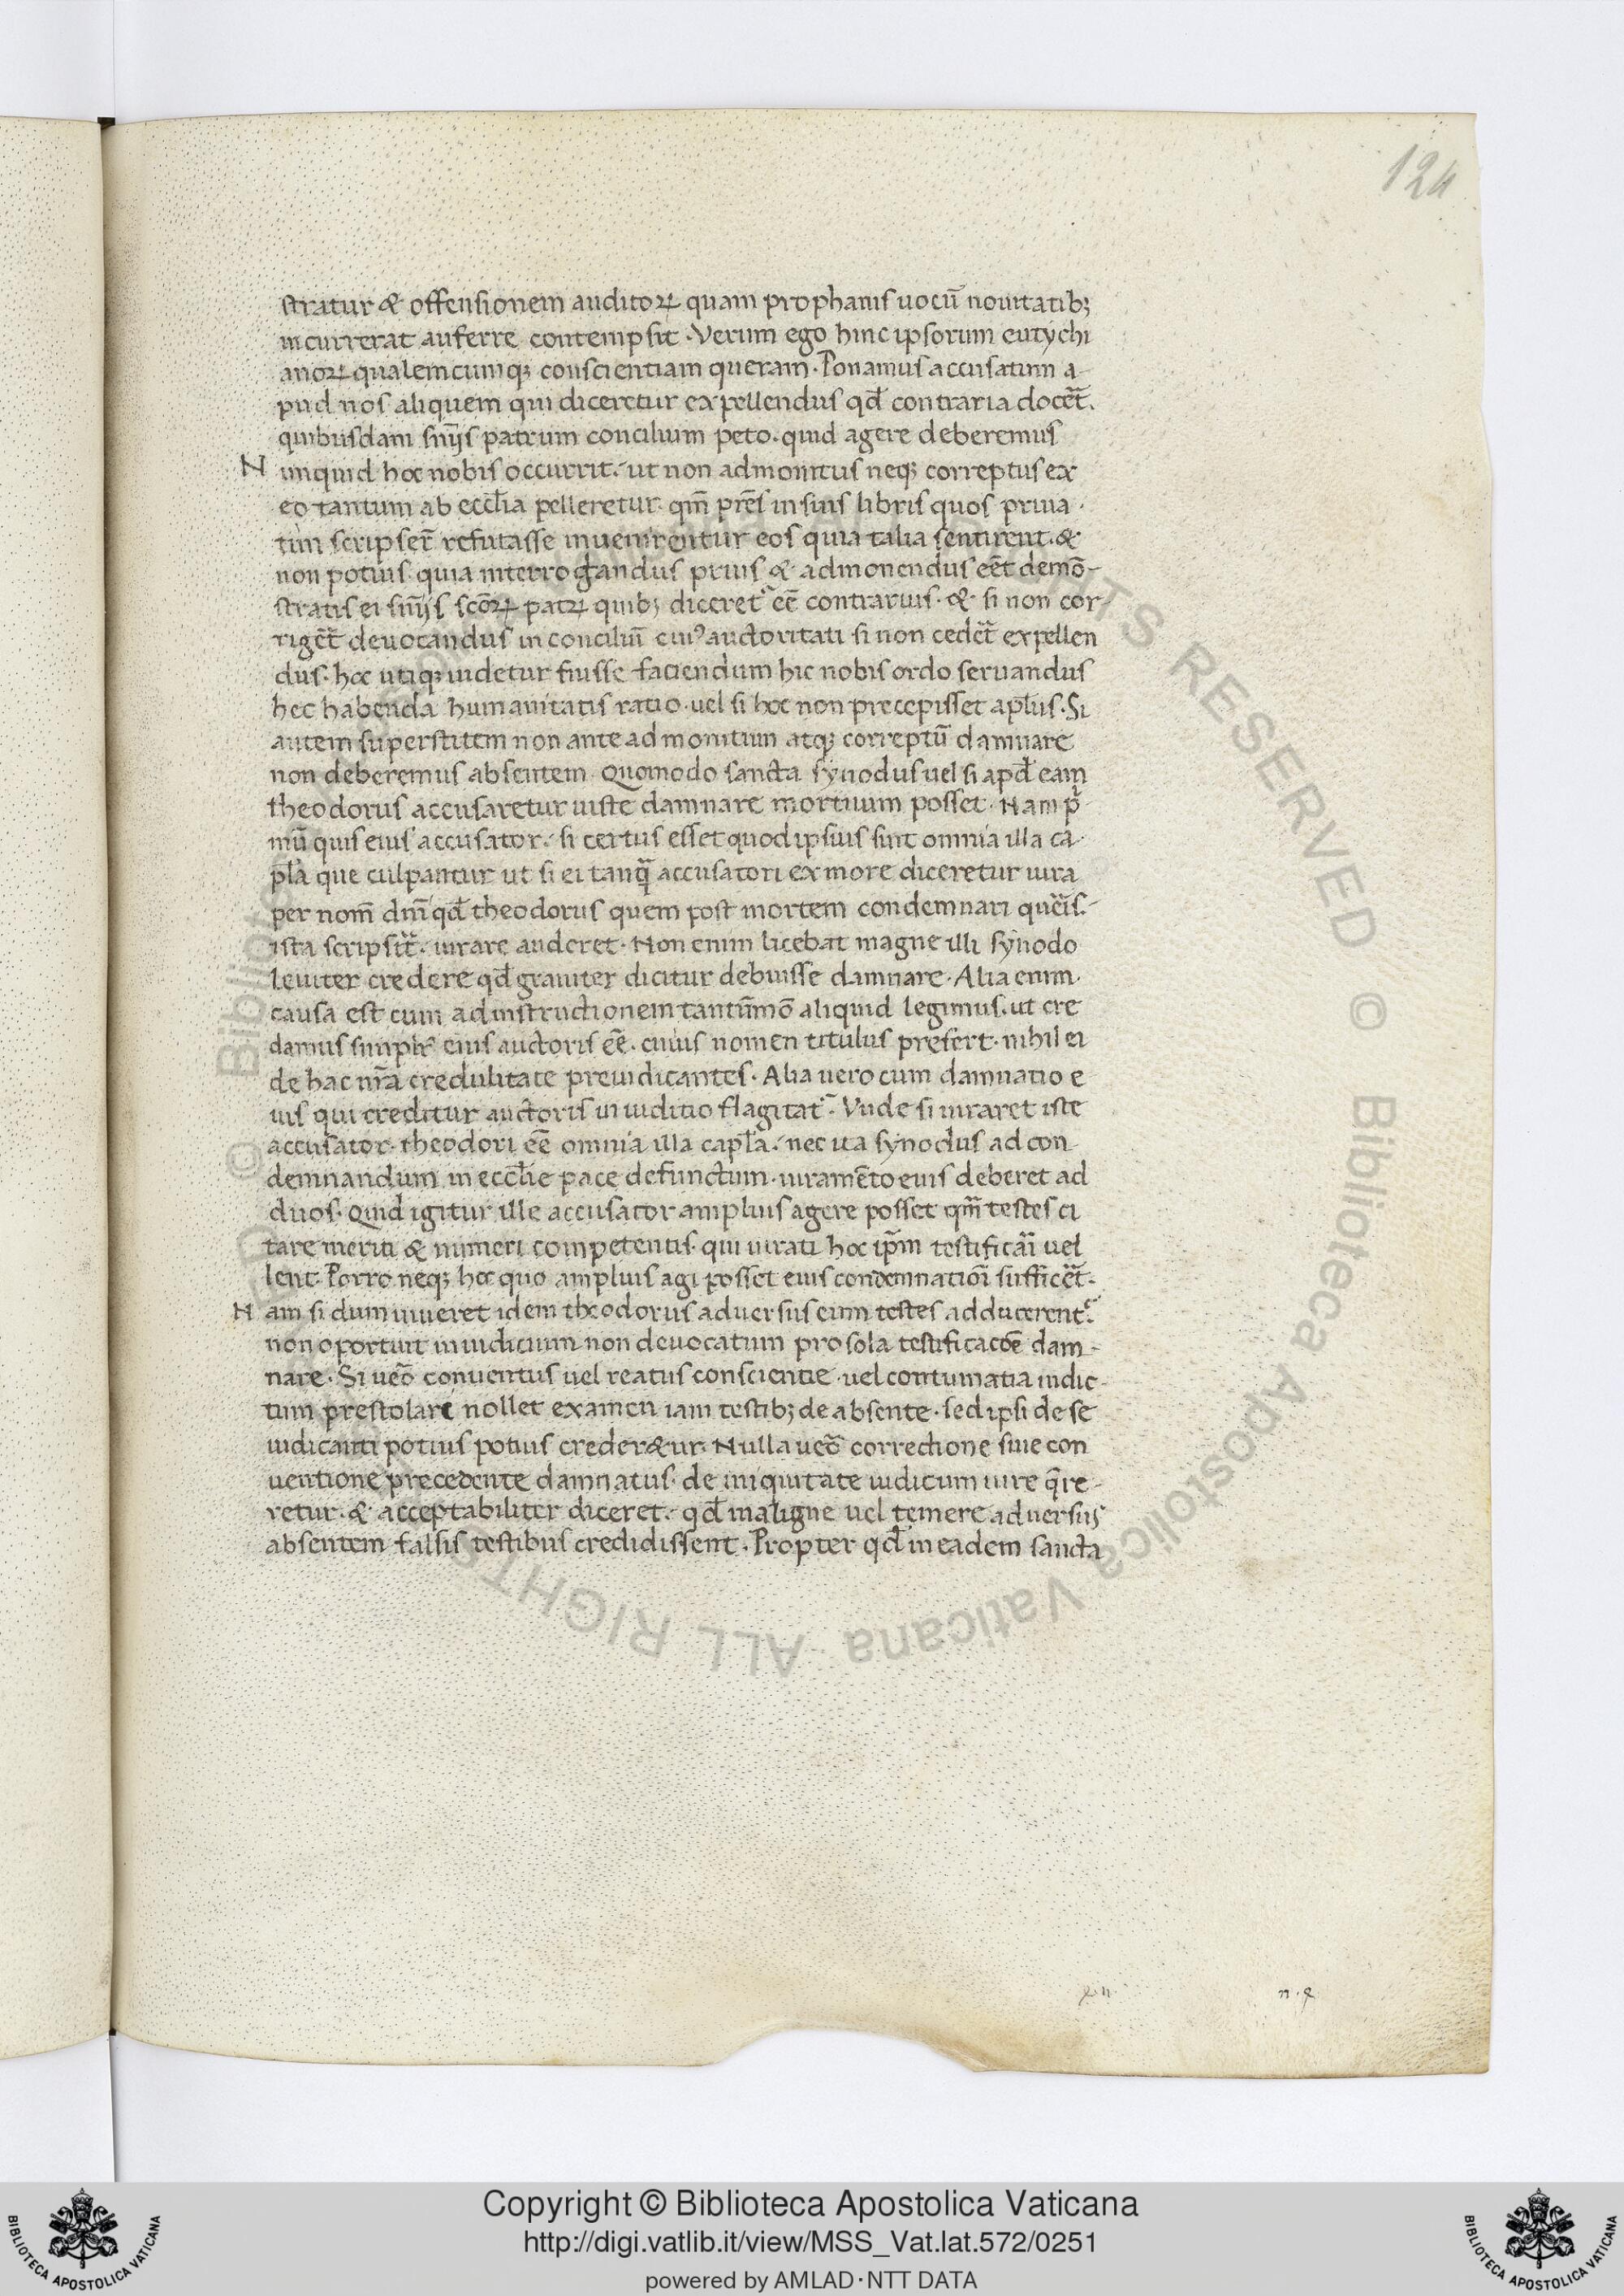 124
stratur & offensionem auditoꝝ quam prophanis uocū nouitatibꝫ
incurrerat auferre contempsit. Verum ego hinc ipsorum eutychi
anoꝝ qualemcumqꝫ conscientiam queram. Ponamus accusatum a-
pud nos aliquem qui diceretur expellendus qd̄ contraria docēt.
quibusdam snījs patrum concilium peto. quid agere deberemus
N unquid hoc nobis occurrit. ut non admonitus neqꝫ correptus ex
eo tantum ab eccl̄ia pelleretur. qm̄ prēs in suis libris quos priua-
tim scripsēt refutasse inuenirentur eos quia talia sentirent. &
non potius quia interrogandus prius & admonendus eēt demō-
stratis ei snīis scōꝝ patꝝ quibꝫ diceret᷑ eē contrarius. & si non cor-
rigēt deuocandus in conciliū cuiꝰ auctoritati si non cedēt expellen
dus. hoc utiqꝫ uidetur fuisse faciendum hic nobis ordo seruandus
hec habenda humanitatis ratio. uel si hoc non precepisset apl̄us. Si
autem superstitem non ante admonitum atqꝫ correptū damnare
non deberemus absentem. Quomodo sancta synodus uel si apd̄ eam
theodorus accusaretur iuste damnare mortuum posset. Nam pͥ-
mū quis eius accusator. si certus esset quod ipsius sint omnia illa ca-
pl̄a que culpantur ut si ei tanq̄ accusatori ex more diceretur iura
per nom̄ dnī qd̄ theodorus quem post mortem condemnari queris.
ista scripsit. iurare auderet. Non enim licebat magne illi synodo
leuiter credere qd̄ grauiter dicitur debuisse damnare. Alia enim
causa est cum ad instructionem tantūmō aliquid legimus. ut cre
damus simplr̄ eius auctoris eē. cuius nomen titulus prefert. nihil ei
de hac nr̄a credulitate preiudicantes. Alia uero cum damnatio e
ius qui creditur auctoris in iuditio flagitat᷑. Vnde si iuraret iste
accusator. theodori eē omnia illa capl̄a. nec ita synodus ad con
demnandum in eccl̄ie pace defunctum. iuramēto euis deberet ad
duos. Quid igitur ille accusator amplius agere posset qm̄ testes ci
tare meriti & numeri competentis. qui iurati hoc ip̄m testificari uel
lent. Porro neqꝫ hoc quo amplius agi posset eius condemnatioī sufficēt.
N am si dum uiueret idem theodorus aduersus eum testes adducerent᷑.
non oportuit in iudicium non deuocatum pro sola testificacōe dam-
nare. Si uēo conuentus uel reatus conscientie. uel contumatia iudic-
tum prestolare nollet examen iam testibꝫ de absente. sed ipsi de se
iudicanti potius potius crederæur. Nulla uēo correctione siue con
uentione precedente damnatus. de iniquitate iudicum iure q̄re-
retur. & acceptabiliter diceret. qd̄ maligne uel temere aduersus
absentem falsis testibus credidissent. Propter qd̄ in eadem sancta
Copyright © Biblioteca Apostolica Vaticana
http://digi.vatlib.it/view/MSS_Vat.lat.572/0251
powered by AMLAD·NTT DATA
BIBLIOTECA APOSTOLICA VATICANA
BIBLIOTECA APOSTOLICA VATICANA
© Biblioteca Apostolica Vaticana ALL RIGHTS RESERVED